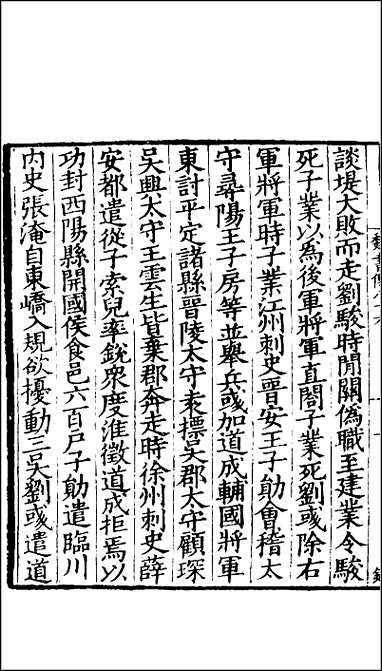 談堤大敗而走劉駿時閒關偽職至建業令駿
死子業以為後軍將軍直閤子業死劉彧除右
軍將軍時子業江州刺史晉安王子勛會稽太
守尋陽王子房等並舉兵彧加道成輔國將軍
東討平定諸縣晉陵太守袁摽吳郡太守顧琛
吳興太守王雲生皆棄郡奔走時徐州刺史薛
安都遣從子索兒率銳衆度淮徵道成拒焉以
功封西陽縣開國侯食邑六百戶子勛遣臨川
內史張淹自東嶠入規欲擾動三吳劉彧遣道